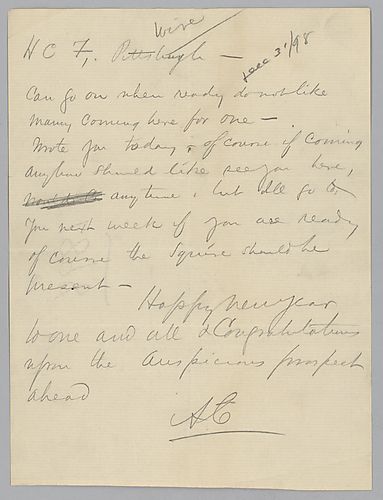 Wire
H C F, Pittsburgh —
Dec 31/98
Can go on when ready do not like
many coming here for one —
Wrote you today & of course if coming
anyhow should like see you here,
anytime, but all go to
you next week if you are ready
of course the Squire should be
present —
Happy new year
to one and all & Congratulations
upon the auspicious prospect
ahead
AC